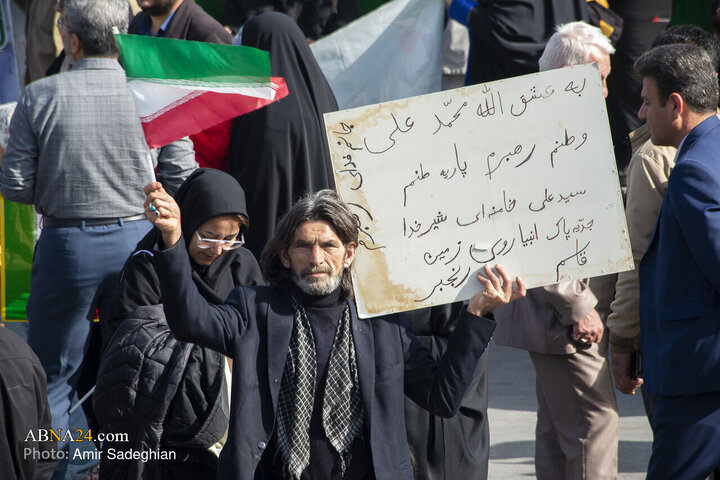 به عشق الله محمّد علی
وطنم رهبرم پاره طنم
سید علی خامنه‌ای شیر خدا
جدّه پاک انبیا روی زمین
قاسم رنجبر
جانم فدای رهبرم
ABNA24.com
Photo: Amir Sadeghian